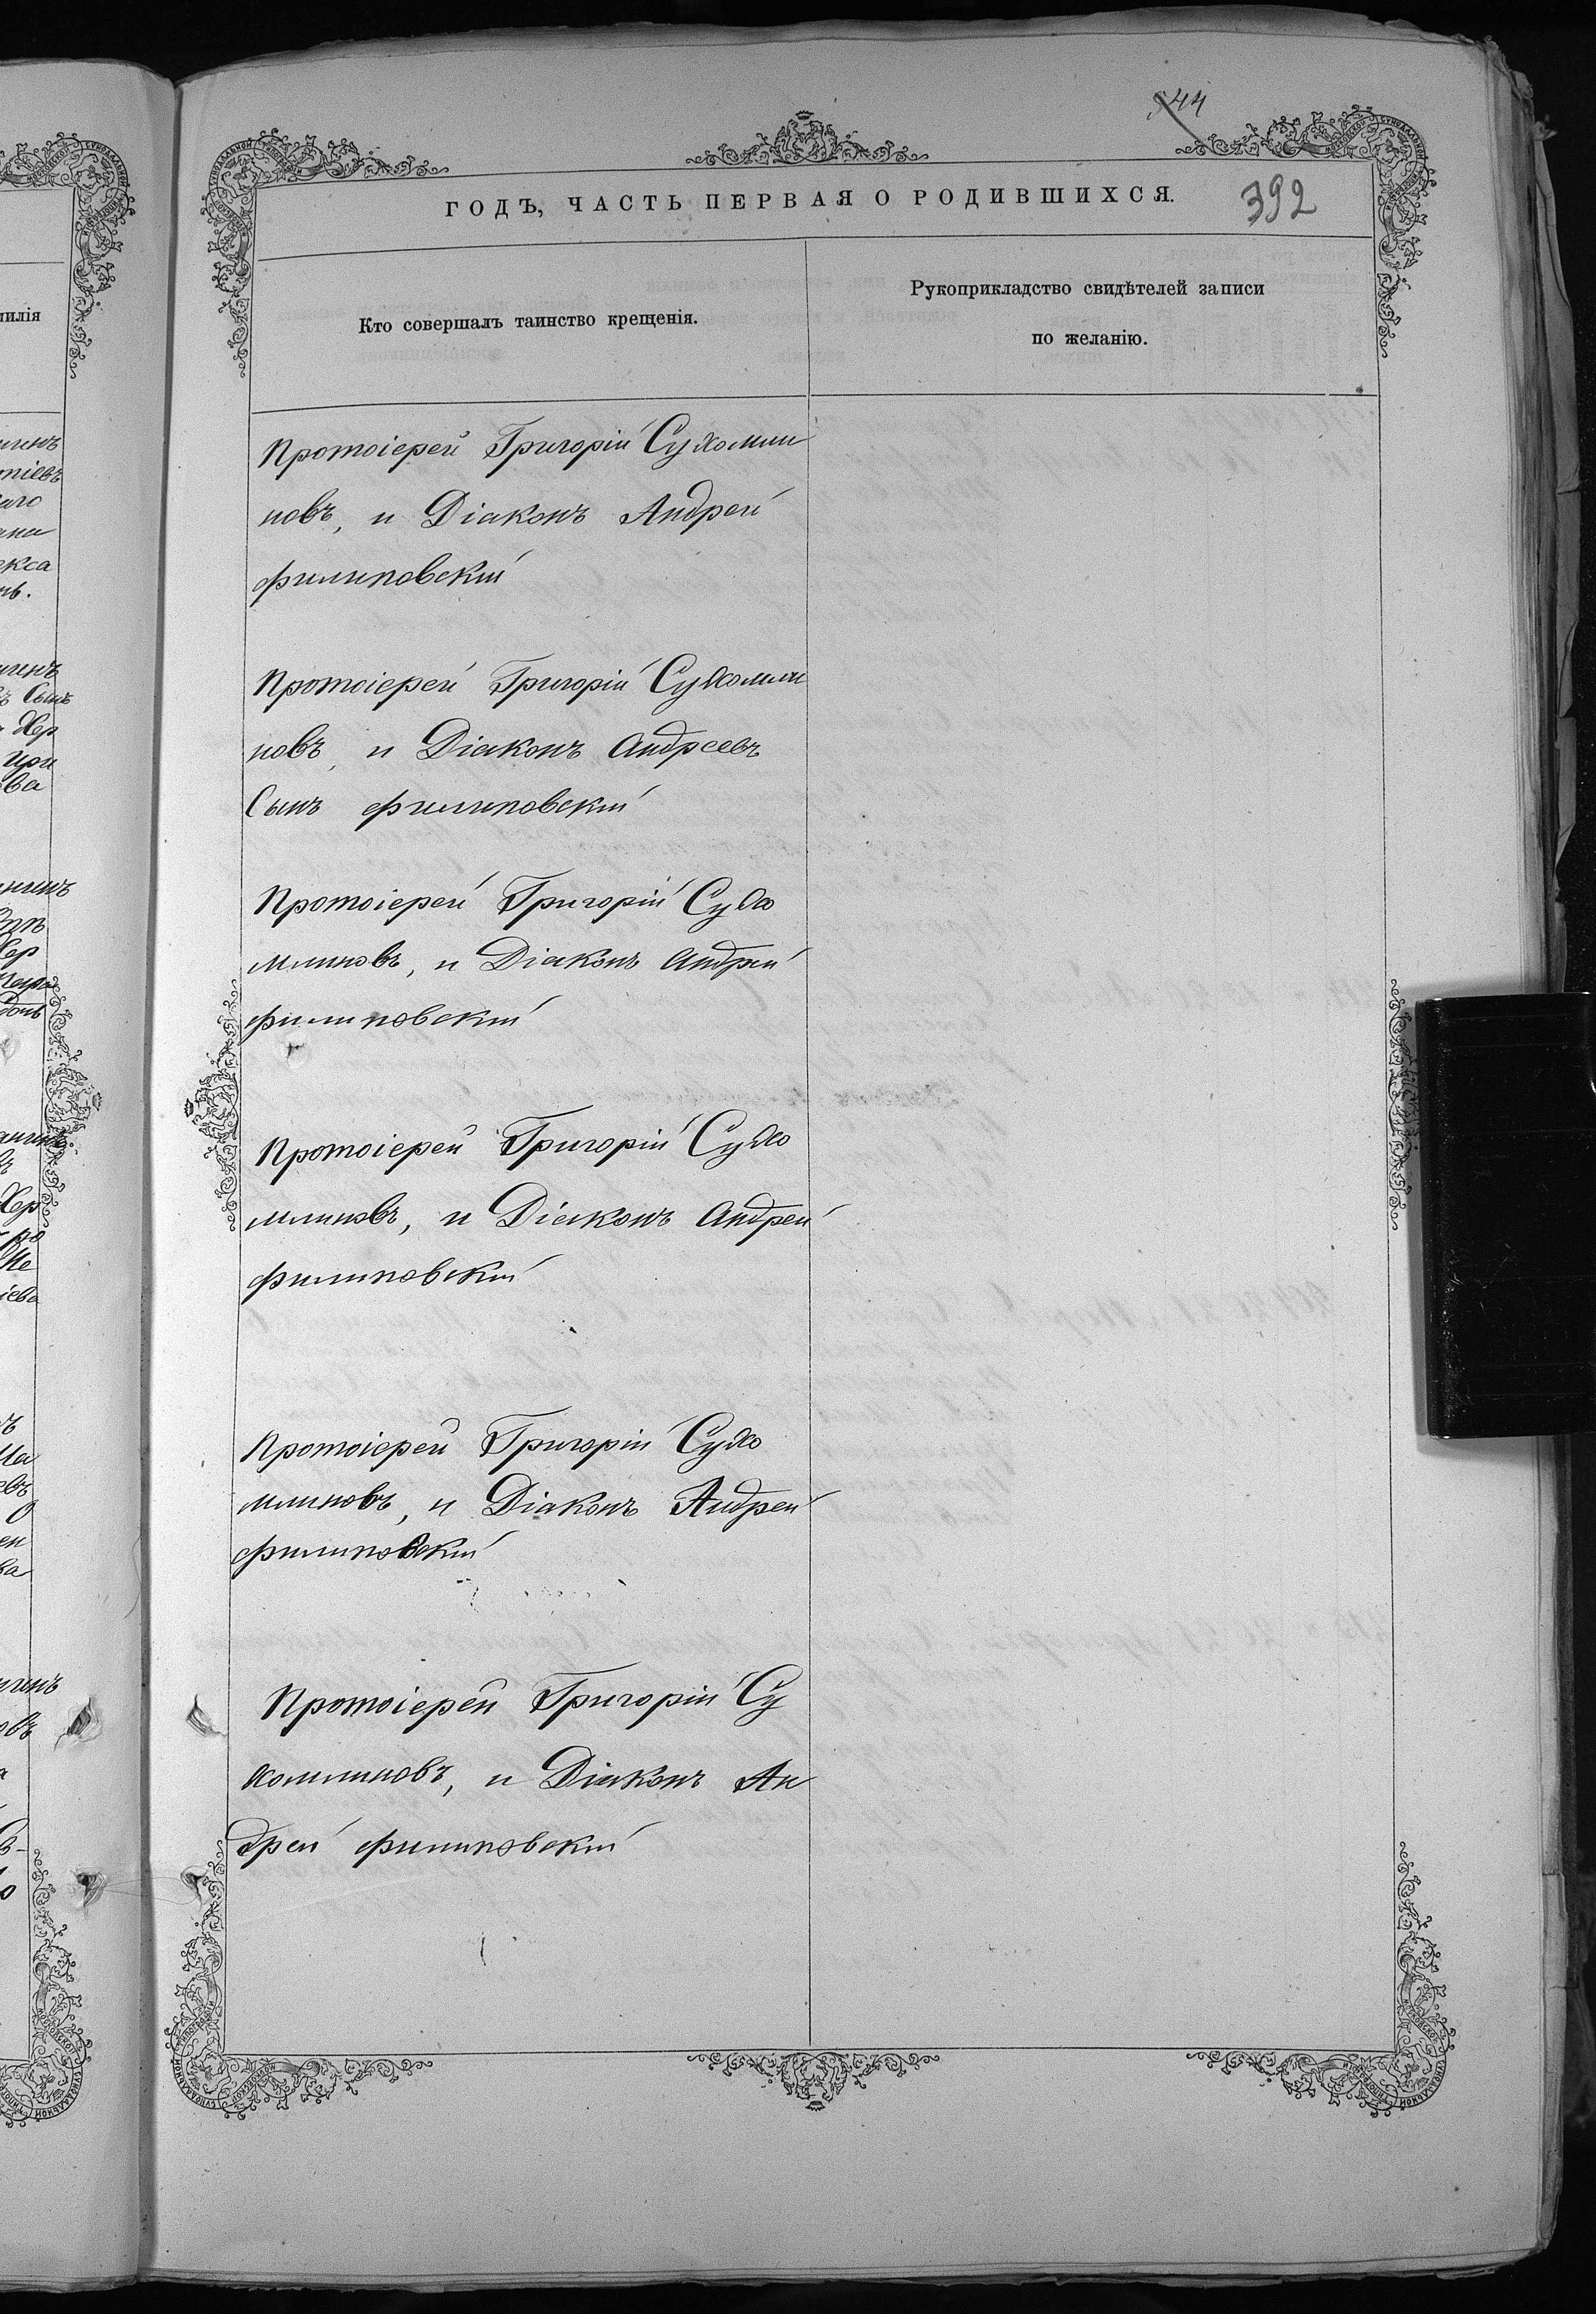 544
ГОДЪ, ЧАСТЬ ПЕРВАЯ О РОДИВШИХСЯ.
392
Кто совершалъ таинство крещенія.
Рукоприкладство свидѣтелей записи
по желанію.
Протоіерей Григорій Сухомли
новъ, и Діаконъ Андрей
филиповскій
Протоіерей Григорій Сухомли
новъ, и Діаконъ Андреевъ
Сынъ филиповскій
Протоіерей Григорій Сухо
млиновъ, и Діаконъ Андрей
филиповскій
Протоіерей Григорій Сухо
млиновъ, и Діаконъ Андрей
филиповскій
Протоіерей Григорій Сухо
млиновъ, и Діаконъ Андрей
филиповскій
Протоіерей Григорій Су
хомлиновъ, и Діаконъ Ан
дрей филиповскій